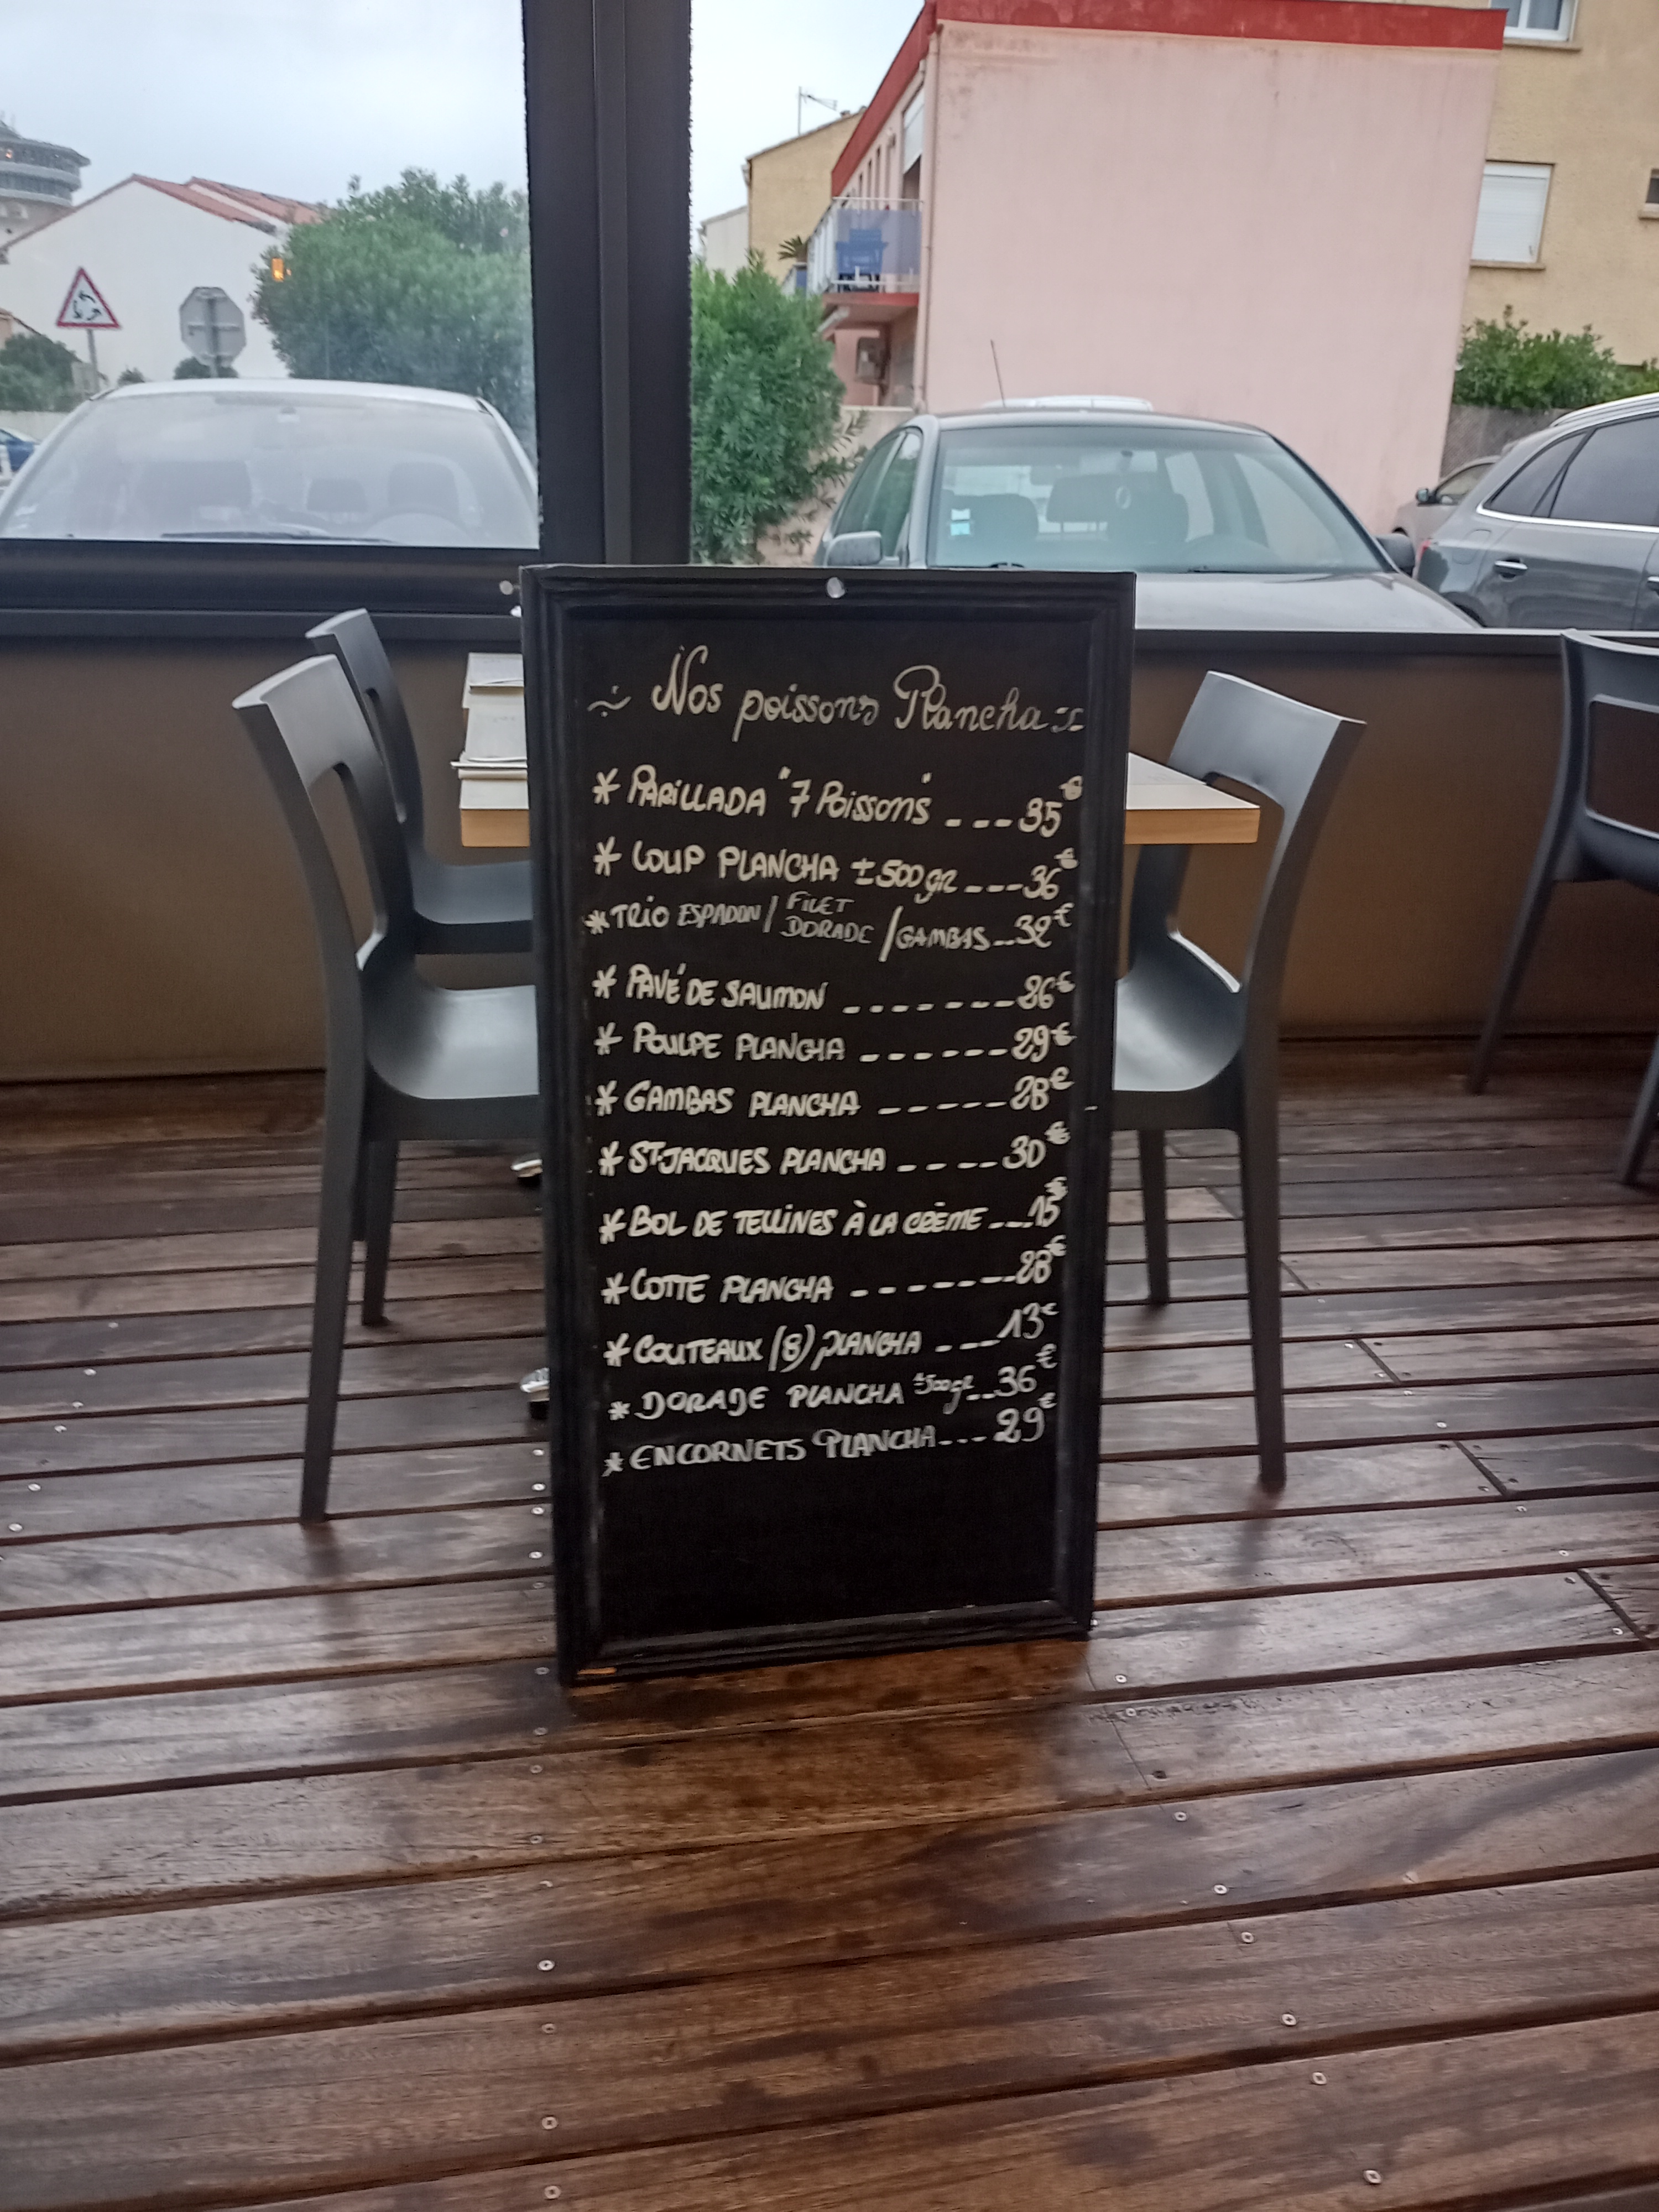 Nos poissons Plancha
* PARILLADA "7 Poissons" ---35€
* LOUP PLANCHA ±500gr ---36€
* TRIO ESPADON / FILET DORADE / GAMBAS --32€
* PAVÉ DE SAUMON -------26€
* POULPE PLANCHA ------29€
* GAMBAS PLANCHA -----28€
* ST-JACQUES PLANCHA ----30€
* BOL DE TELLINES À LA CRÈME ---15€
* COTTE PLANCHA -------28€
* COUTEAUX (8) PLANCHA ---13€
* DORADE PLANCHA ±500gr--36€
* ENCORNETS PLANCHA---29€